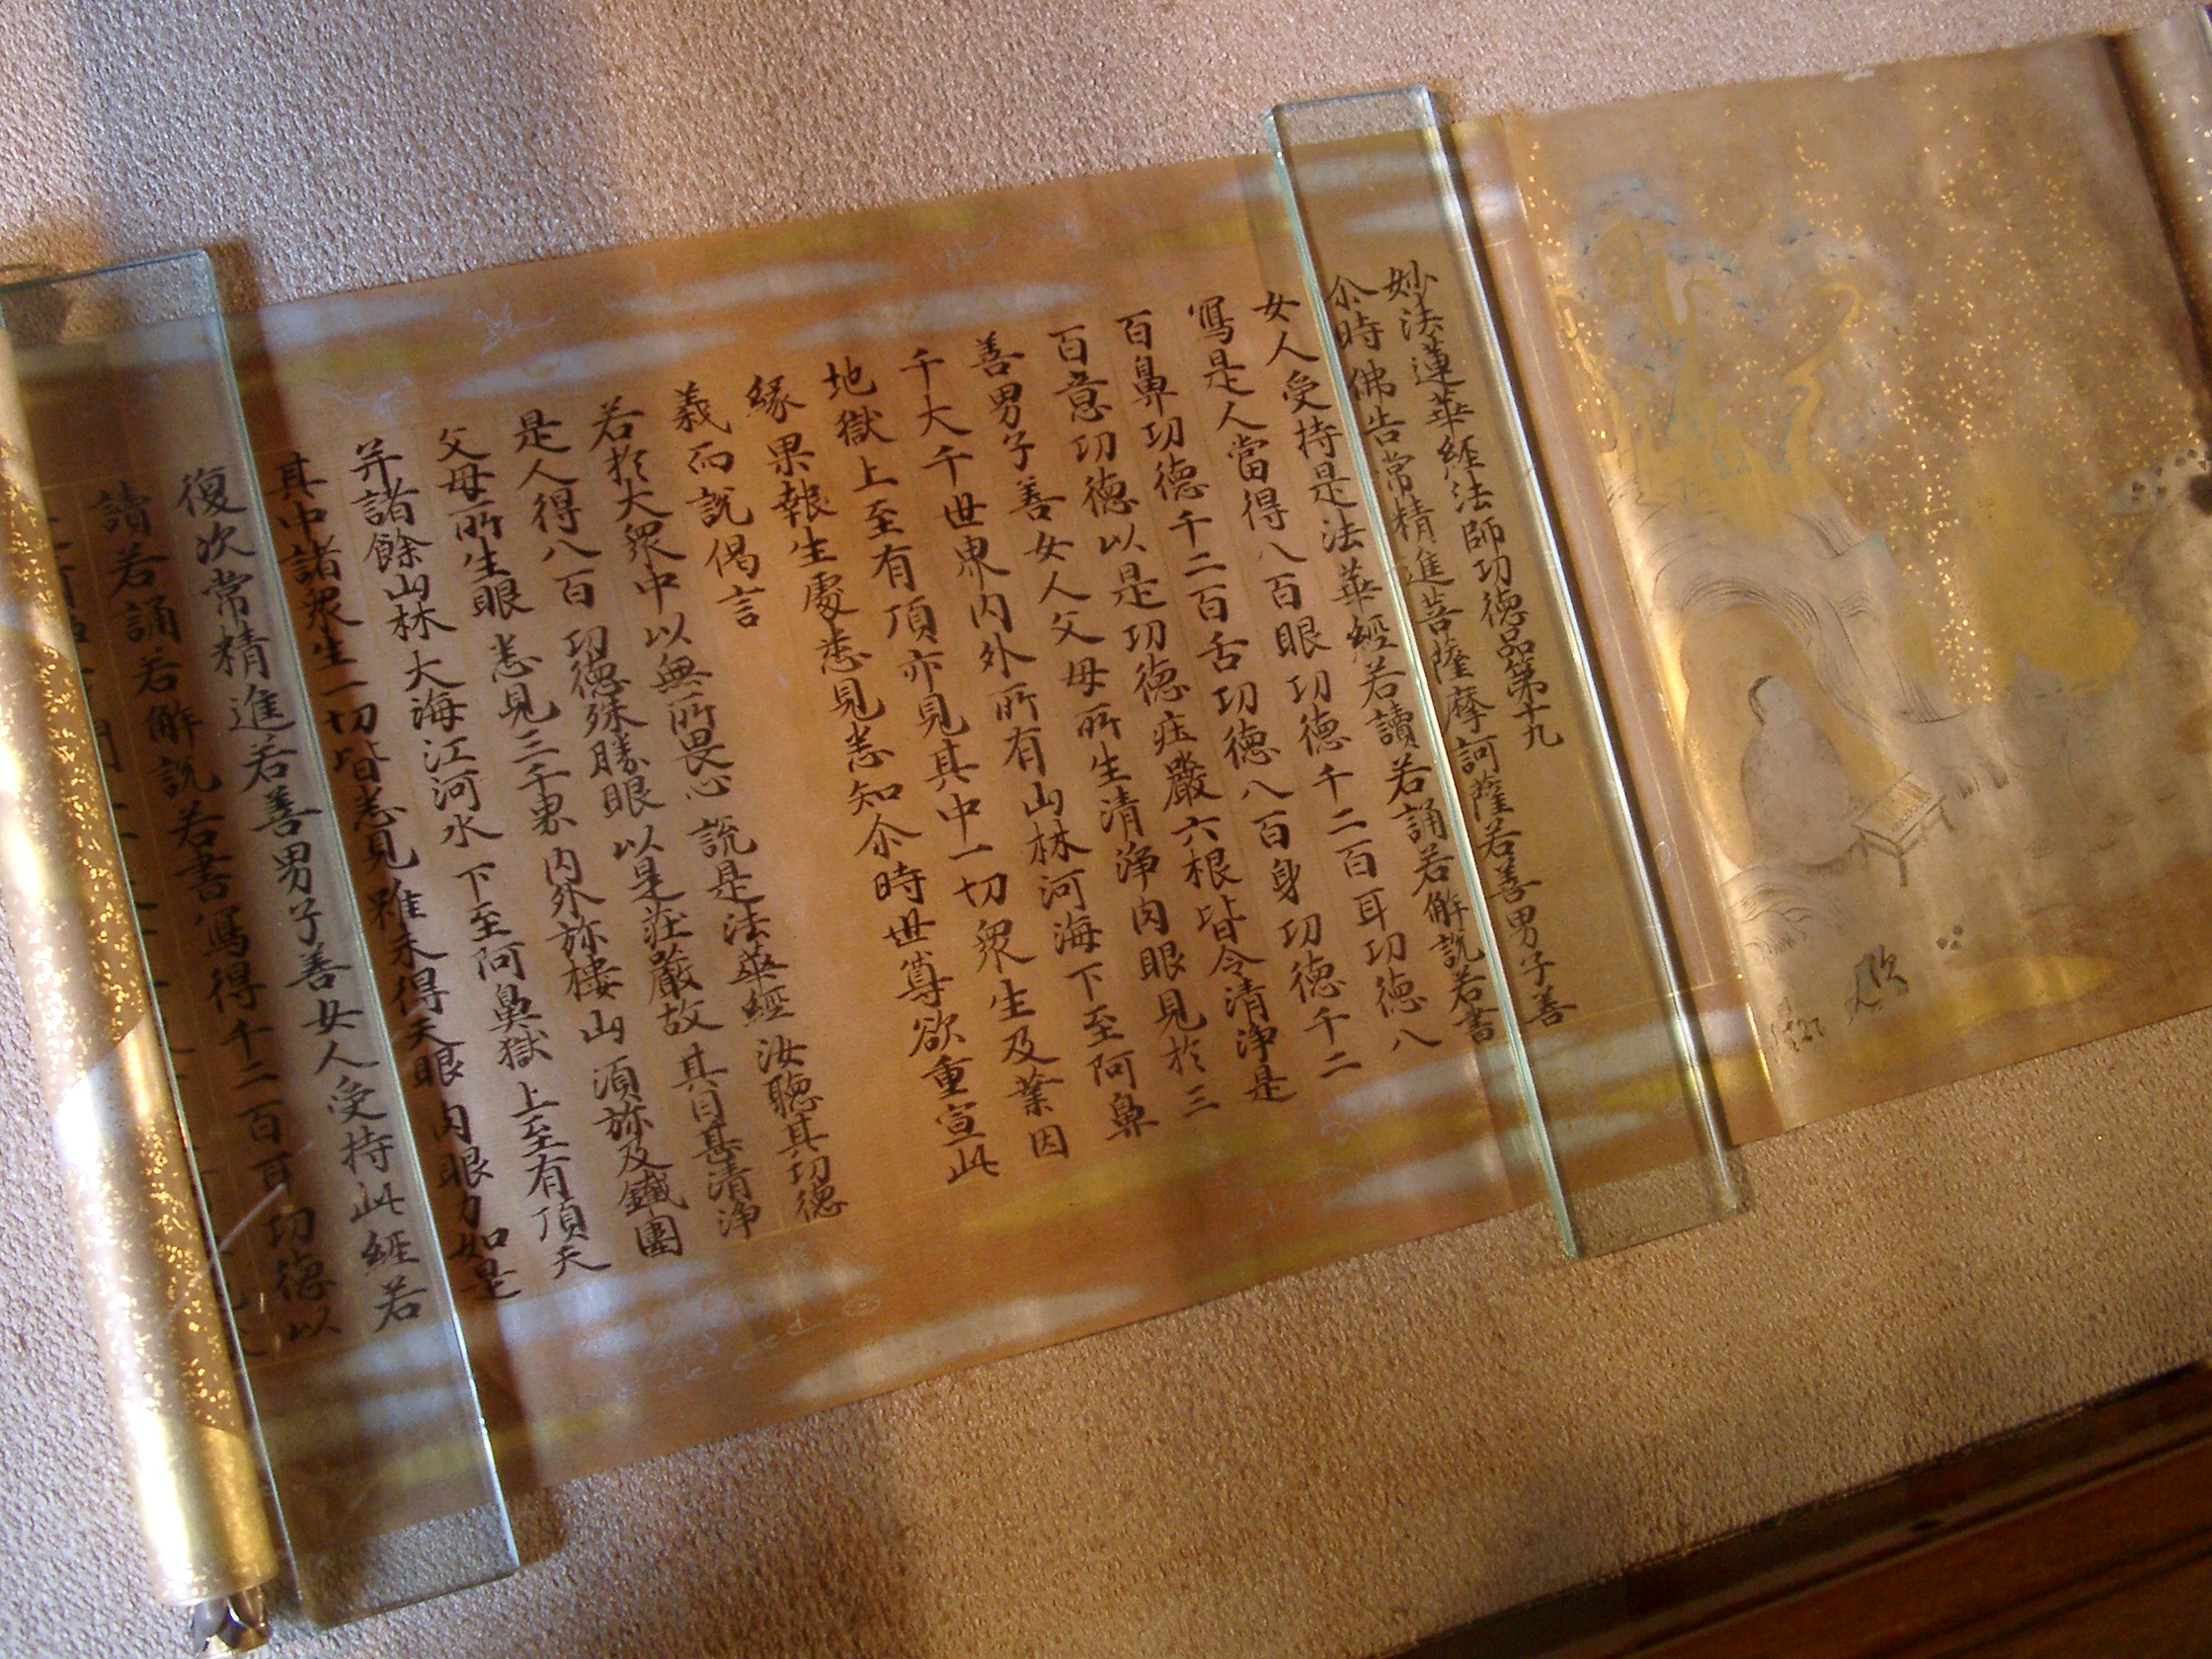 妙法蓮華經法師功德品第十九
尒時佛告常精進菩薩摩訶薩若善男子善
女人受持是法華經若讀若誦若解説若書
寫是人當得八百眼功德千二百耳功德八
百鼻功德千二百舌功德八百身功德千二
百意功德以是功德庄嚴六根皆令清淨是
善男子善女人父母所生清淨肉眼見於三
千大千世界内外所有山林河海下至阿鼻
地獄上至有頂亦見其中一切衆生及業因
緣果報生處悉見悉知尒時世尊欲重宣此
義而説偈言
若於大衆中以無所畏心説是法華經汝聽其功德
是人得八百功德殊勝眼以是莊嚴故其目甚清淨
父母所生眼悉見三千界内外弥樓山湏弥及鐵圍
并諸餘山林大海江河水下至阿鼻獄上至有頂天
其中諸衆生一切皆悉見雖未得天眼肉眼力如是
復次常精進若善男子善女人受持此經若
讀若誦若解説若書寫得千二百耳功德以